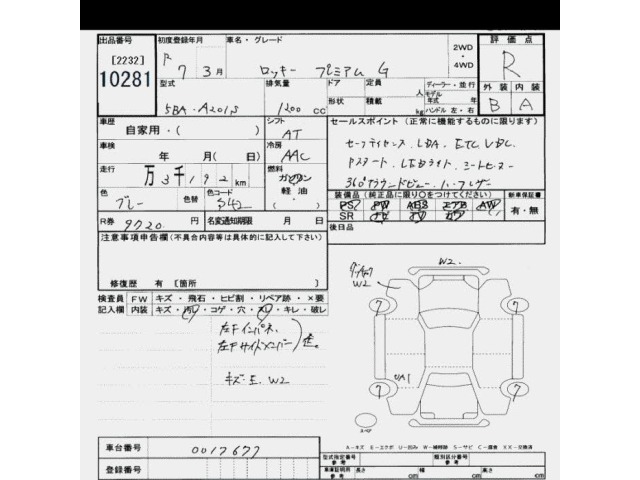 出品番号 初度登録年月 車名・グレード 評価点
[2232] R 7 3月 ロッキー プレミアム G 2WD ・ 4WD R
10281 型式 排気量 ドア 定員 人 ディーラー・並行
外装 内装
5BA-A201S 1200 cc 形状 積載 kg モデル 年式 年 ハンドル 左・右
B A
車歴 自家用・( ) シフト AT セールスポイント(正常に機能するものに限ります)
車検 年 月(日) 冷房 AAC LDA、ETC、LDC、
走行 万 3千192km 燃料 ガソリン 軽油 LEDライト、シートヒーター
360°アラウンドビュー
色 グレー 色替 色コード S42 装備品(純正品に限り○をつけてください) 新車保証書
PS PW ABS エアB AW 有・無
R券 9720 名変通知期限 月 日 SR
注意事項申告欄(不具合内容等は具体的に記入して下さい) 後日品
修復歴 有 [箇所 ]
検査員 FW キズ・飛石・ヒビ割・リペア跡・×要
記入欄 内装 キズ・汚れ・コゲ・穴・キレ・破レ
左Fインパネ
左Fサイドメンバー
キズ・E、W2
W2
W2
7 7
7 7
UA1
スペア
A-キズ E-エクボ U-凹み W-補修跡 S-サビ C-腐食 XX-交換済
車台番号 0017677 型式指定番号 参考 類別区分番号 参考
登録番号 車庫証明用 参考 長さ cm 幅 cm 高さ cm